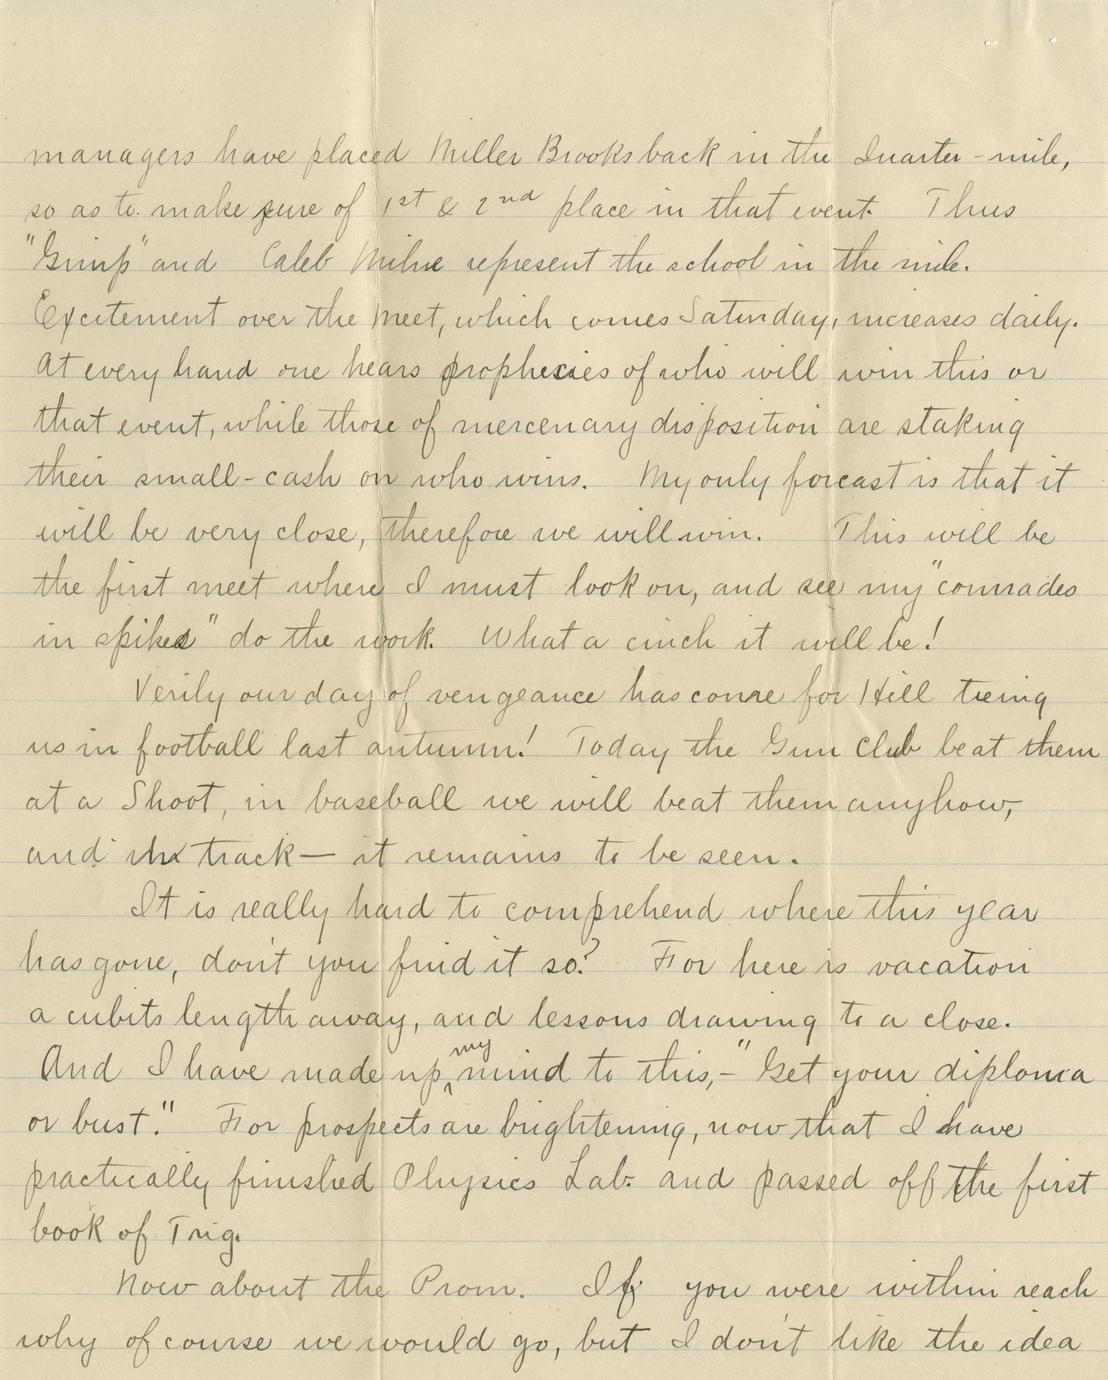 managers have placed Miller Brooks back in the Quarter-mile,
so as to make sure of 1st & 2nd place in that event. Thus
"Gimp" and Caleb Milne represent the school in the mile.
Excitement over the meet, which comes Saturday, increases daily.
At every hand one hears prophecies of who will win this or
that event, while those of mercenary disposition are staking
their small-cash on who wins. My only forecast is that it
will be very close, therefore we will win. This will be
the first meet where I must look on, and see my "comrades
in spikes" do the work. What a cinch it will be!
Verily our day of vengeance has come for Hill tieing
us in football last autumn! Today the Gun Club beat them
at a Shoot, in baseball we will beat them anyhow,
and in track — it remains to be seen.
It is really hard to comprehend where this year
has gone, don't you find it so? For here is vacation
a cubits length away, and lessons drawing to a close.
And I have made up my mind to this, - "Get your diploma
or bust." For prospects are brightening, now that I have
practically finished Physics Lab. and passed off the first
book of Trig.
Now about the Prom. If you were within reach
why of course we would go, but I don't like the idea